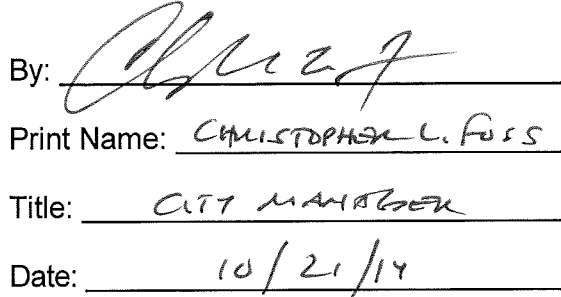 By:
Print Name: CHRISTOPHER L. FOSS
Title: CITY MANAGER
Date: 10/21/14